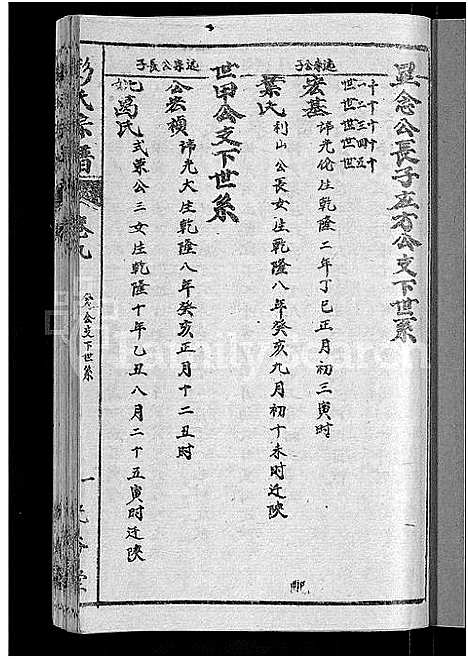 異念公長子应方公支下世系
十一世
十二世
十三世
十四世
十五世
述宗公子
宏基 諱光伦生乾隆二年丁巳正月初三寅时
葉氏 利山公長女生乾隆八年癸亥九月初十未时迁陕
世甲公支下世系
述宗公長子
公宏禎 諱光大生乾隆八年癸亥正月十二丑时
妣葛氏 式東公三女生乾隆十年乙丑八月二十五寅时迁陕
彭氏宗譜
卷九
公支下世系
一
FamilySearch